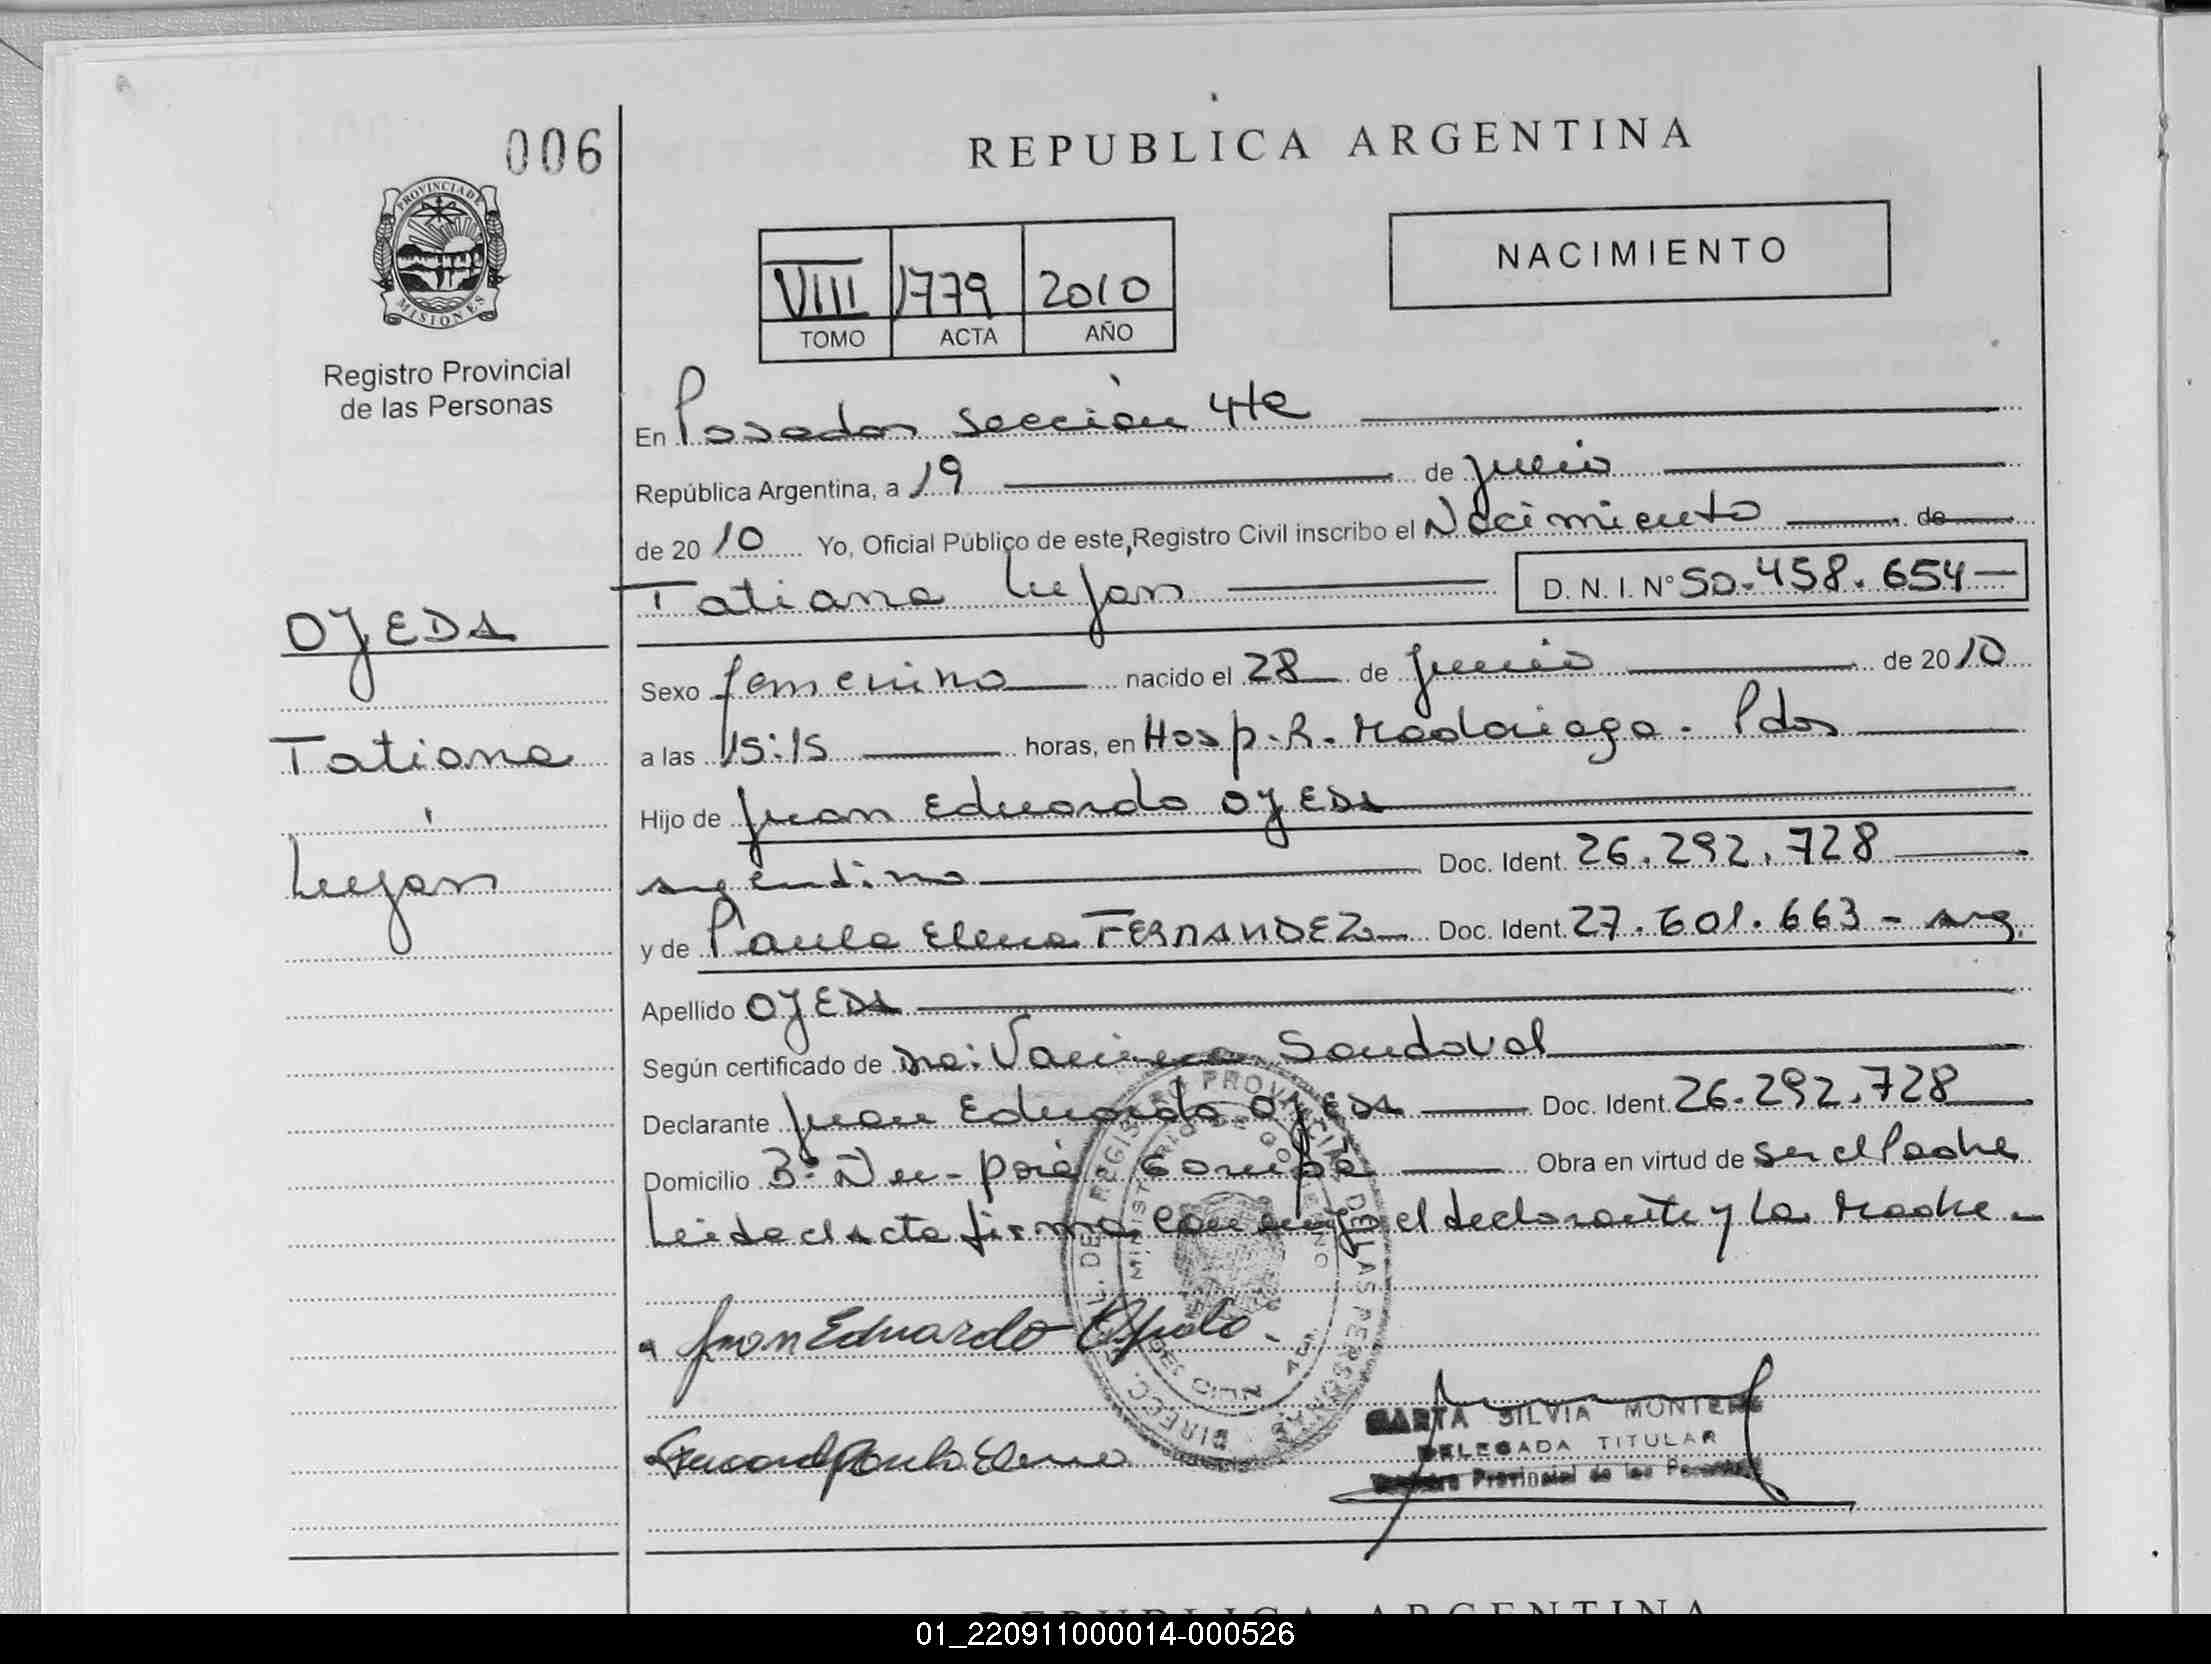 006
REPUBLICA ARGENTINA
PROVINCIA DE
MISIONES
Registro Provincial
de las Personas
VIII 1779 2010
TOMO ACTA AÑO
NACIMIENTO
En Posadas sección 4ta
República Argentina, a 19 de julio
de 2010 Yo, Oficial Público de este Registro Civil inscribo el Nacimiento de
Tatiana Luján D. N. I. Nº 50.458.654
OJEDA
Tatiana
Luján
Sexo femenino nacido el 28 de junio de 2010
a las 15:15 horas, en Hosp. R. Madariaga. Pdas
Hijo de Juan Eduardo OJEDA
argentino Doc. Ident. 26.292.728
y de Paula Elena FERNANDEZ Doc. Ident. 27.601.663 - arg.
Apellido OJEDA
Según certificado de Dra: Sandoval
Declarante Juan Eduardo OJEDA Doc. Ident. 26.292.728
Domicilio Bº Ñu-porá Garupá Obra en virtud de ser el Padre
Leída el Acta firma conmigo el declarante y la Madre
Juan Eduardo Ojeda
Paula Elena
DIREC. DEL REGISTRO PROVINCIAL DE LAS PERSONAS
MINISTERIO DE GOBIERNO
MARTA SILVIA MONTERO
DELEGADA TITULAR
Registro Provincial de las Personas
REPUBLICA ARGENTINA
01_220911000014-000526